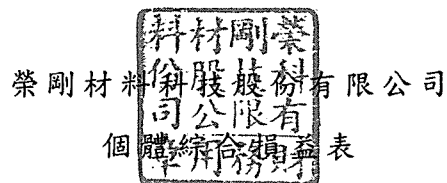 榮剛材料科技股份有限公司
個體綜合損益表
榮剛材料
科技股份
有限公司